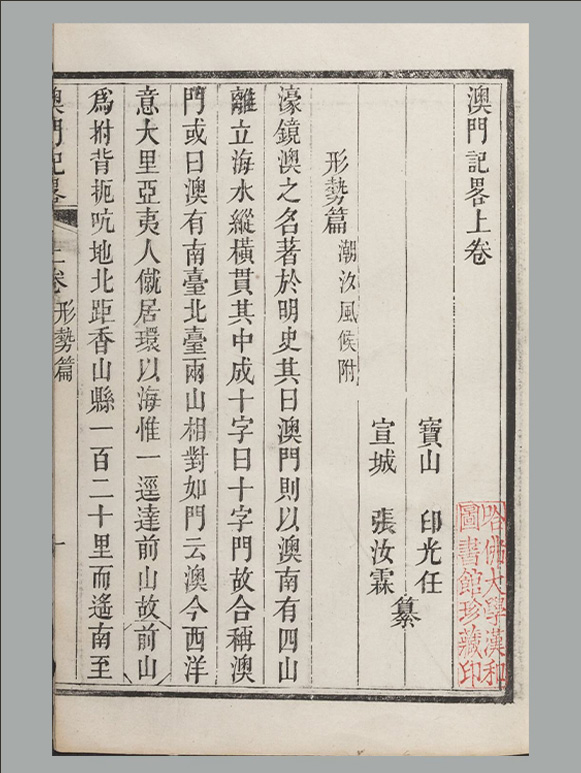 澳門記畧上卷
寶山 印光任
宣城 張汝霖 纂
形勢篇 潮汐風候附
濠鏡澳之名著於明史其曰澳門則以澳南有四山
離立海水縱橫貫其中成十字曰十字門故合稱澳
門或曰澳有南臺北臺兩山相對如門云澳今西洋
意大里亞夷人僦居環以海惟一逕達前山故前山
爲拊背扼吭地北距香山縣一百二十里而遙南至
澳門記畧 上卷 形勢篇 一
哈佛大學漢和
圖書館珍藏印